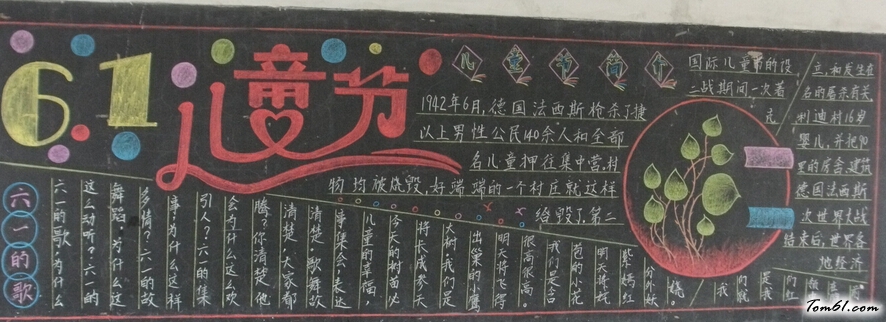 6.1
儿童节
儿童节简介
国际儿童节的设
二战期间一次著
1942年6月,德国法西斯枪杀了捷
以上男性公民140余人和全部
名儿童押往集中营,村
物均被烧毁,好端端的一个村庄就这样
给毁了,第二
立,和发生在
名的屠杀有关,
利迪村16岁
婴儿,并把90
里的房舍、建筑
德国法西斯
次世界大战
结束后,世界各
地经济
六一的歌
六一的歌,为什么
这么动听?六一的
舞蹈,为什么这
多情?六一的故
事,为什么这样
引人?六一的集
会为什么这么欢
腾?你清楚,他
清楚,大家都
清楚,歌舞故
事集会,表达
儿童的幸福,
今天的树苗必
将长成参天
大树,我们是
出巢的小鹰
明天将飞得
很高很高。
我们是含
苞的小花
明天将妊
紫嫣红
分外妖
娆。
Tom61.com